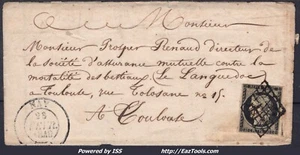 Monsieur
Monsieur Prosper Renaud directeur de
la société d'assurance mutuelle contre la
mortalité des bestiaux, Le Languedoc
a Toulouse, rue Tolosane no 15.
A Toulouse
25
Powered by ISS
http://www.EazTools.com